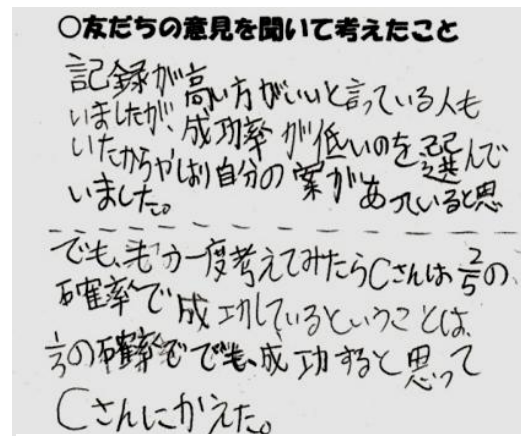 ○友だちの意見を聞いて考えたこと
記録が高い方がいいと言っている人も
いましたが、成功率が低いのを選んで
いたからやはり自分の案があっていると思
いました。
でも、もう一度考えてみたらCさんは2/5の
確率で成功しているということは、
1/3の確率ででも、成功すると思って
Cさんにかえた。